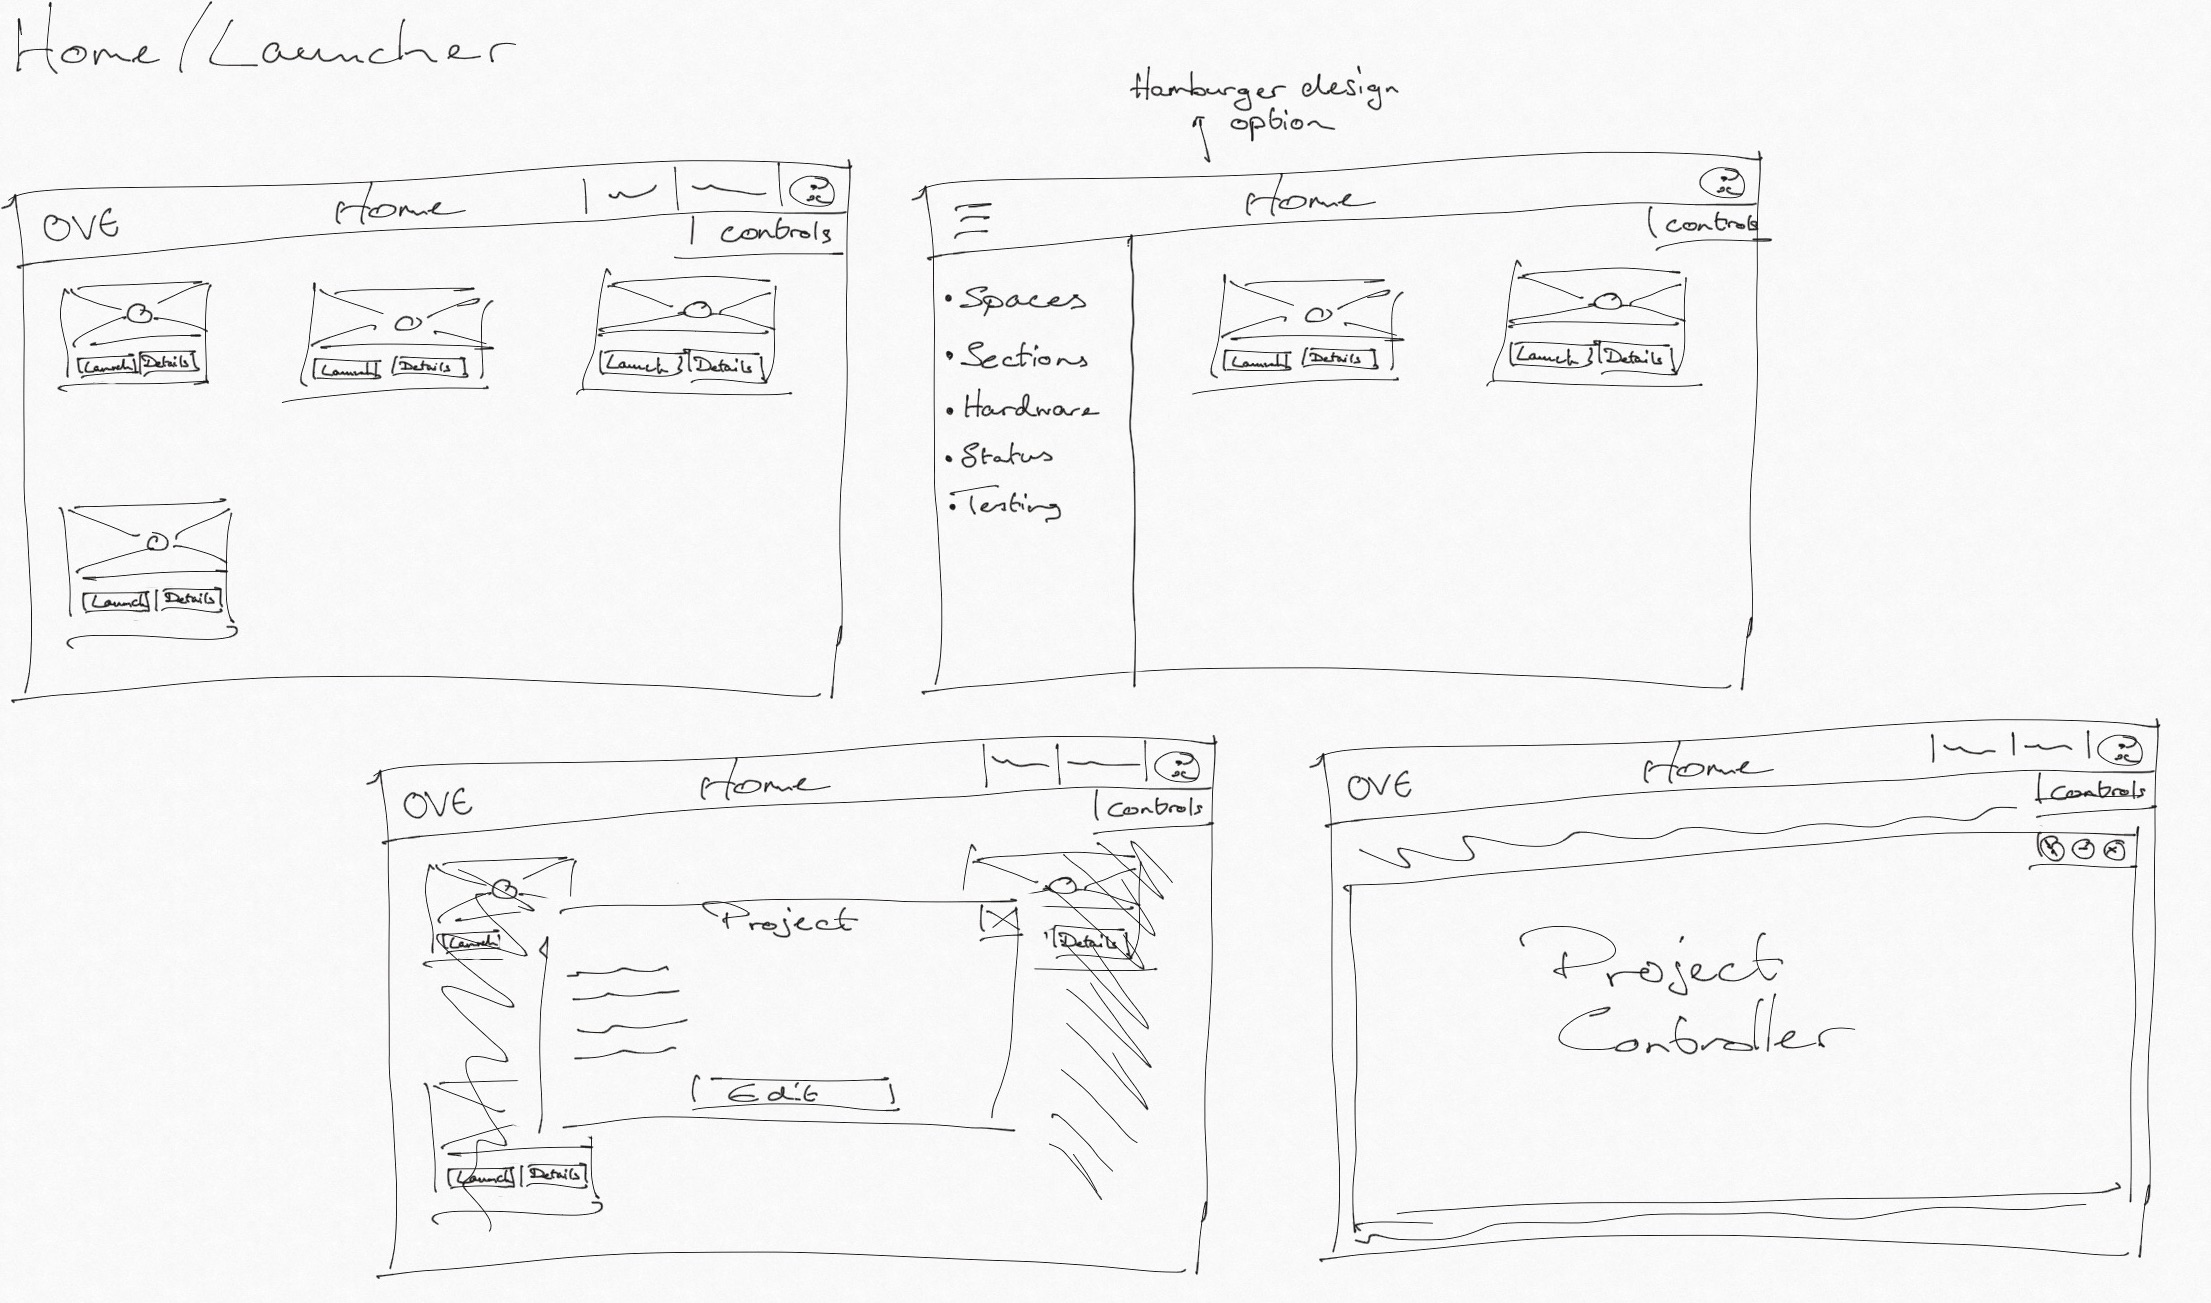 Home/Launcher
Hamburger design
option
OVE
Home
controls
Launch
Details
Launch
Details
Launch
Details
Launch
Details
Home
controls
• Spaces
• Sections
• Hardware
• Status
• Testing
Launch
Details
Launch
Details
OVE
Home
controls
Launch
Project
Details
Edit
Launch
Details
OVE
Home
controls
Project
Controller